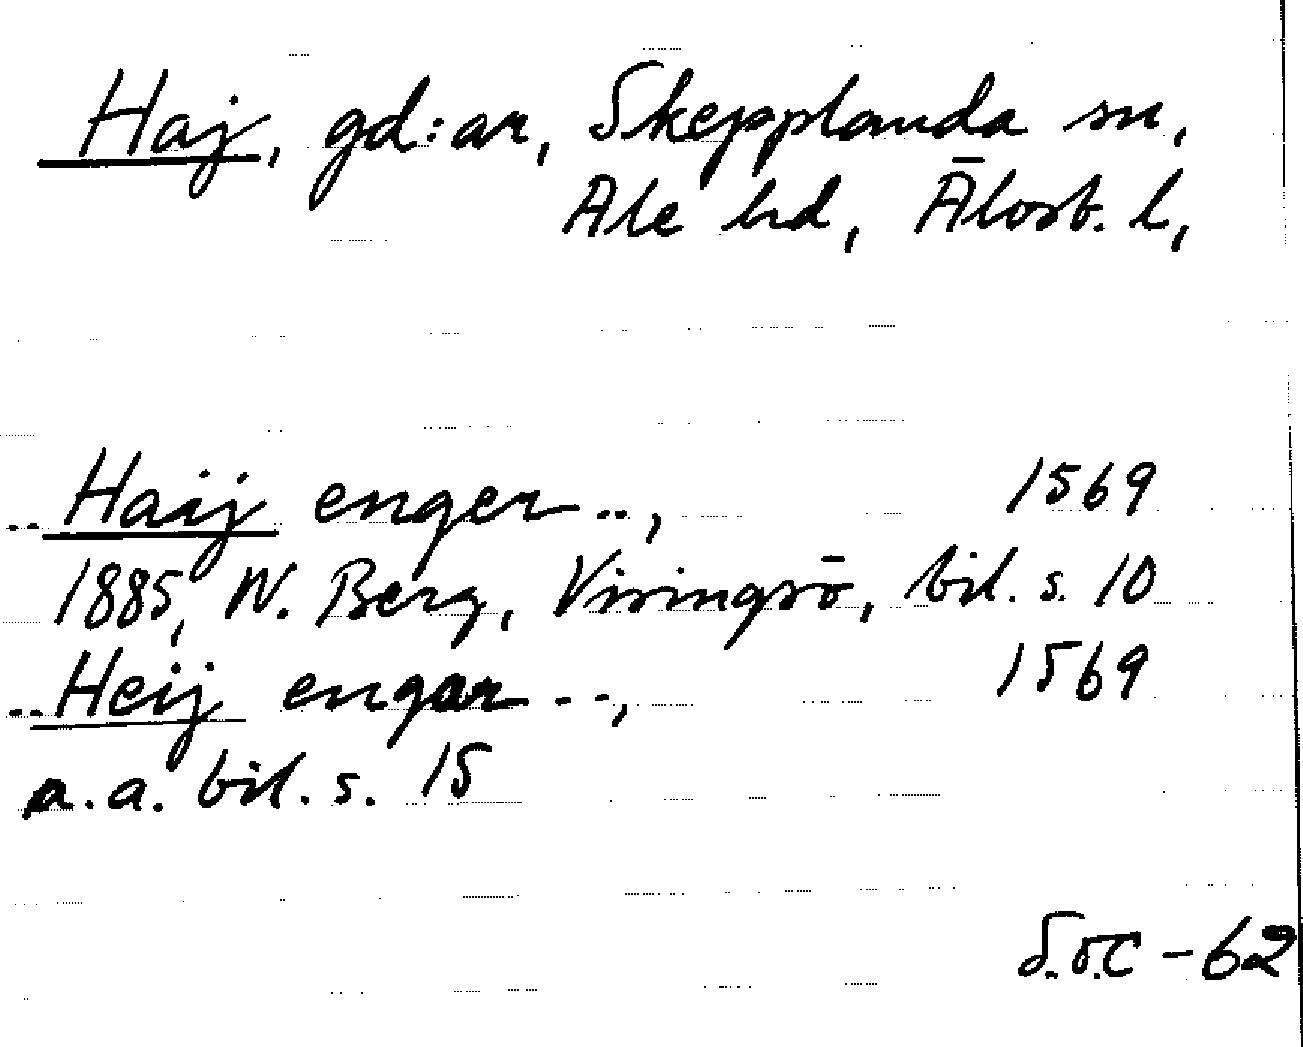 Haj, gd:ar, Skepplanda sn,
Ale hd, Älvsb. l,
..Haij enger..,  1569
1885, W. Berg, Visingsö, bil. s. 10
..Heij engar..,  1569
a.a. bil. s. 15
-62